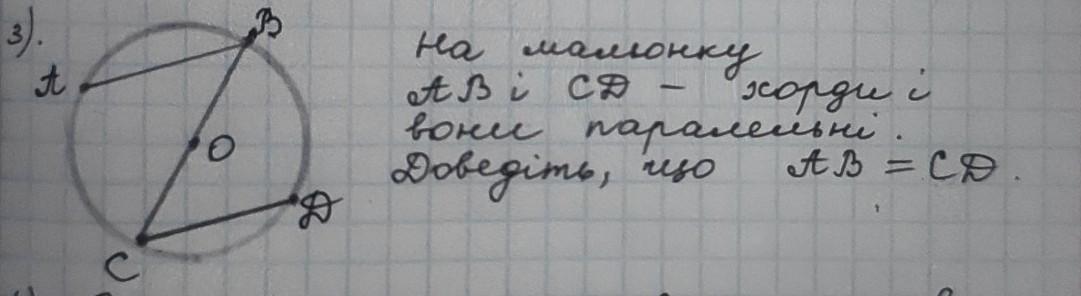 3).
B
A
O
D
C
На малюнку
AB і CD – хорди і
вони паралельні.
Доведіть, що AB = CD.